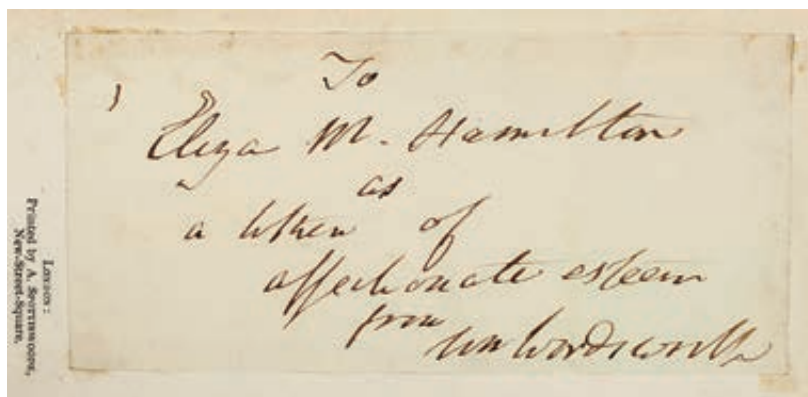 To
Eliza M. Hamilton
as
a token of
affectionate esteem
from
Wm Wordsworth
London:
Printed by A. Spottiswoode,
New-Street-Square.